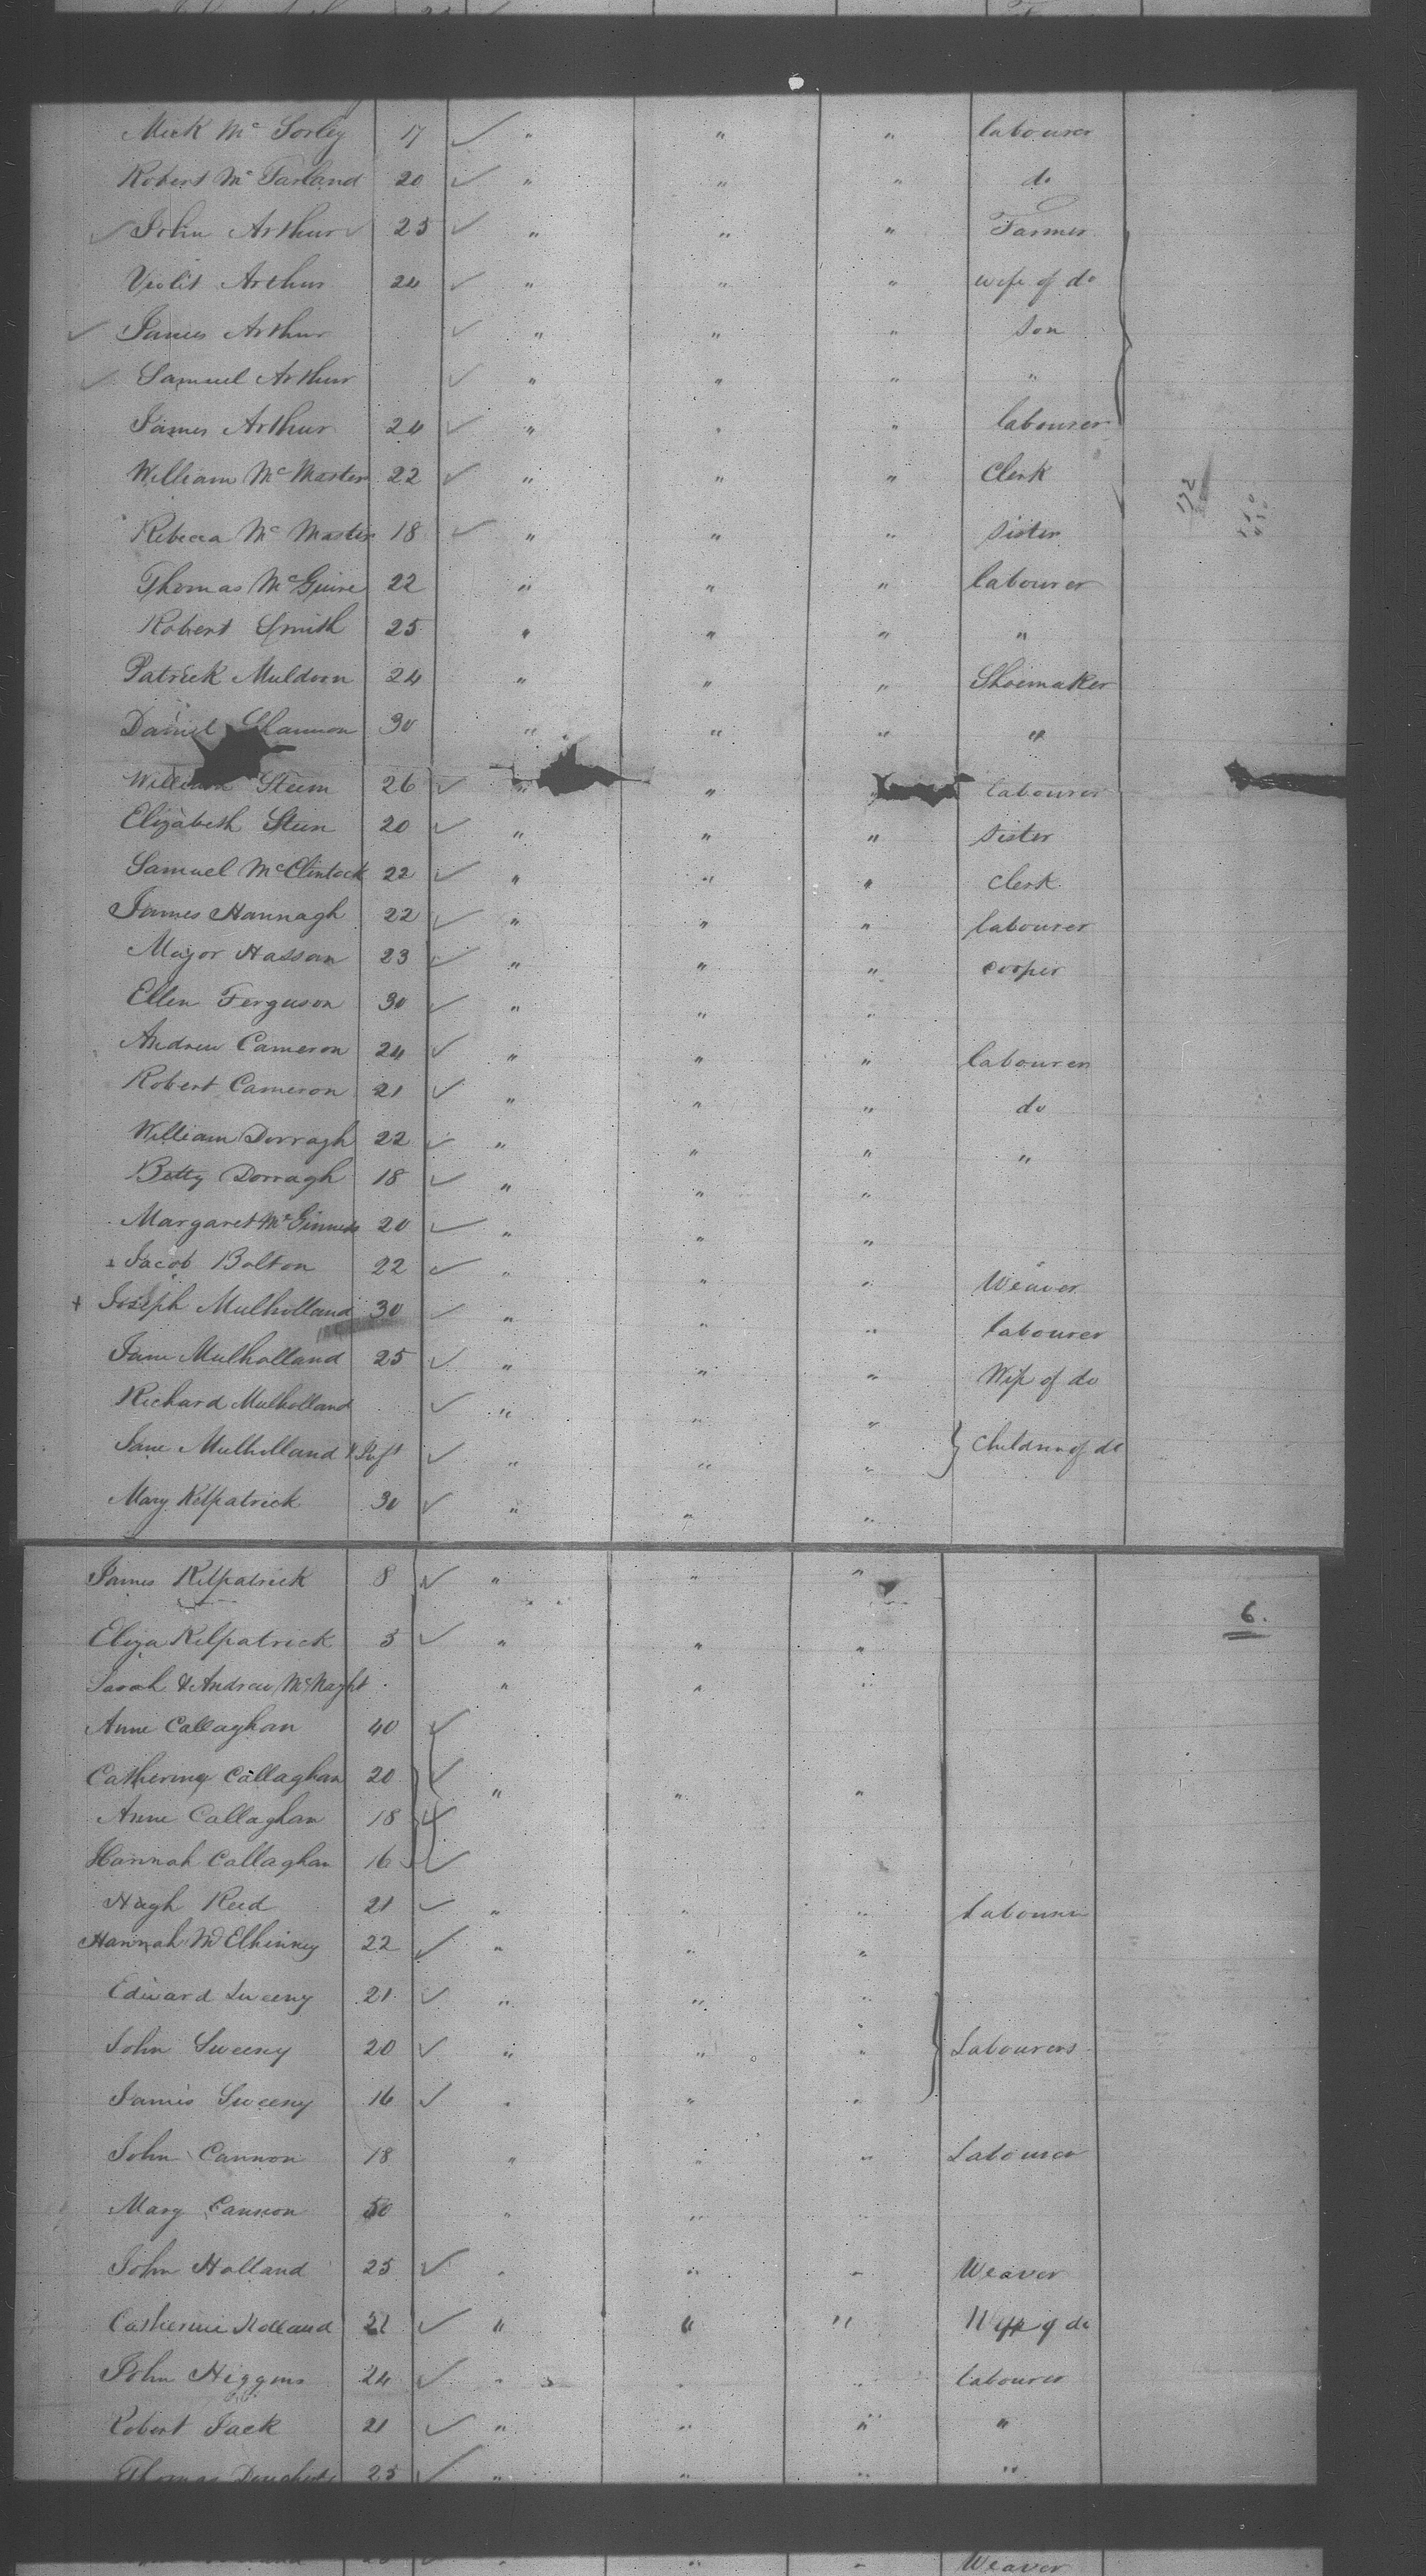 Mick Mc Sorley 17 " " " labourer
Robert Mc Farland 20 " " " do
John Arthur 25 " " " Farmer
Violit Arthur 24 " " " wife of do
James Arthur " " " son
Samuel Arthur " " " "
James Arthur 24 " " " labourer
William Mc Master 22 " " " Clerk
172
Rebecca Mc Master 18 " " " Sister
Thomas McGuire 22 " " " labourer
Robert Smith 25 " " " "
Patrick Muldoon 24 " " " Shoemaker
Daniel Shannon 30 " " " "
William Steen 26 " " " labourer
Elizabeth Steen 20 " " " Sister
Samuel McClintock 22 " " " Clerk
James Hannagh 22 " " " labourer
Major Hassan 23 " " " cooper
Ellen Ferguson 30 " " "
Andrew Cameron 24 " " " labourer
Robert Cameron 21 " " " do
William Dorragh 22 " " " "
Betty Dorragh 18 " " "
Margaret Mc Ginness 20 " " "
Jacob Bolton 22 " " " Weaver
+ Joseph Mulholland 30 " " " labourer
Jane Mulholland 25 " " " Wife of do
Richard Mulholland " " "
Jane Mulholland Inft " " " } Children of do
Mary Kilpatrick 30 " " "
James Kilpatrick 8 " " "
6.
Eliza Kilpatrick 3 " " "
Sarah & Andrew McNaght " " "
Anne Callaghan 40
Catherine Callaghan 20 " " "
Anne Callaghan 18
Hannah Callaghan 16
Hugh Reid 21 " " " Labourer
Hannah McElhinney 22 " " "
Edward Sweeny 21 " " "
John Sweeny 20 " " " } Labourers
James Sweeny 16 " " "
John Cannon 18 " " " Labourer
Mary Cannon 50 " " "
John Holland 25 " " " Weaver
Catherine Holland 21 " " " Wife of do
John Higgins 24 " " " labourer
Robert Jack 21 " " " "
Thomas 25 " " " "
Weaver